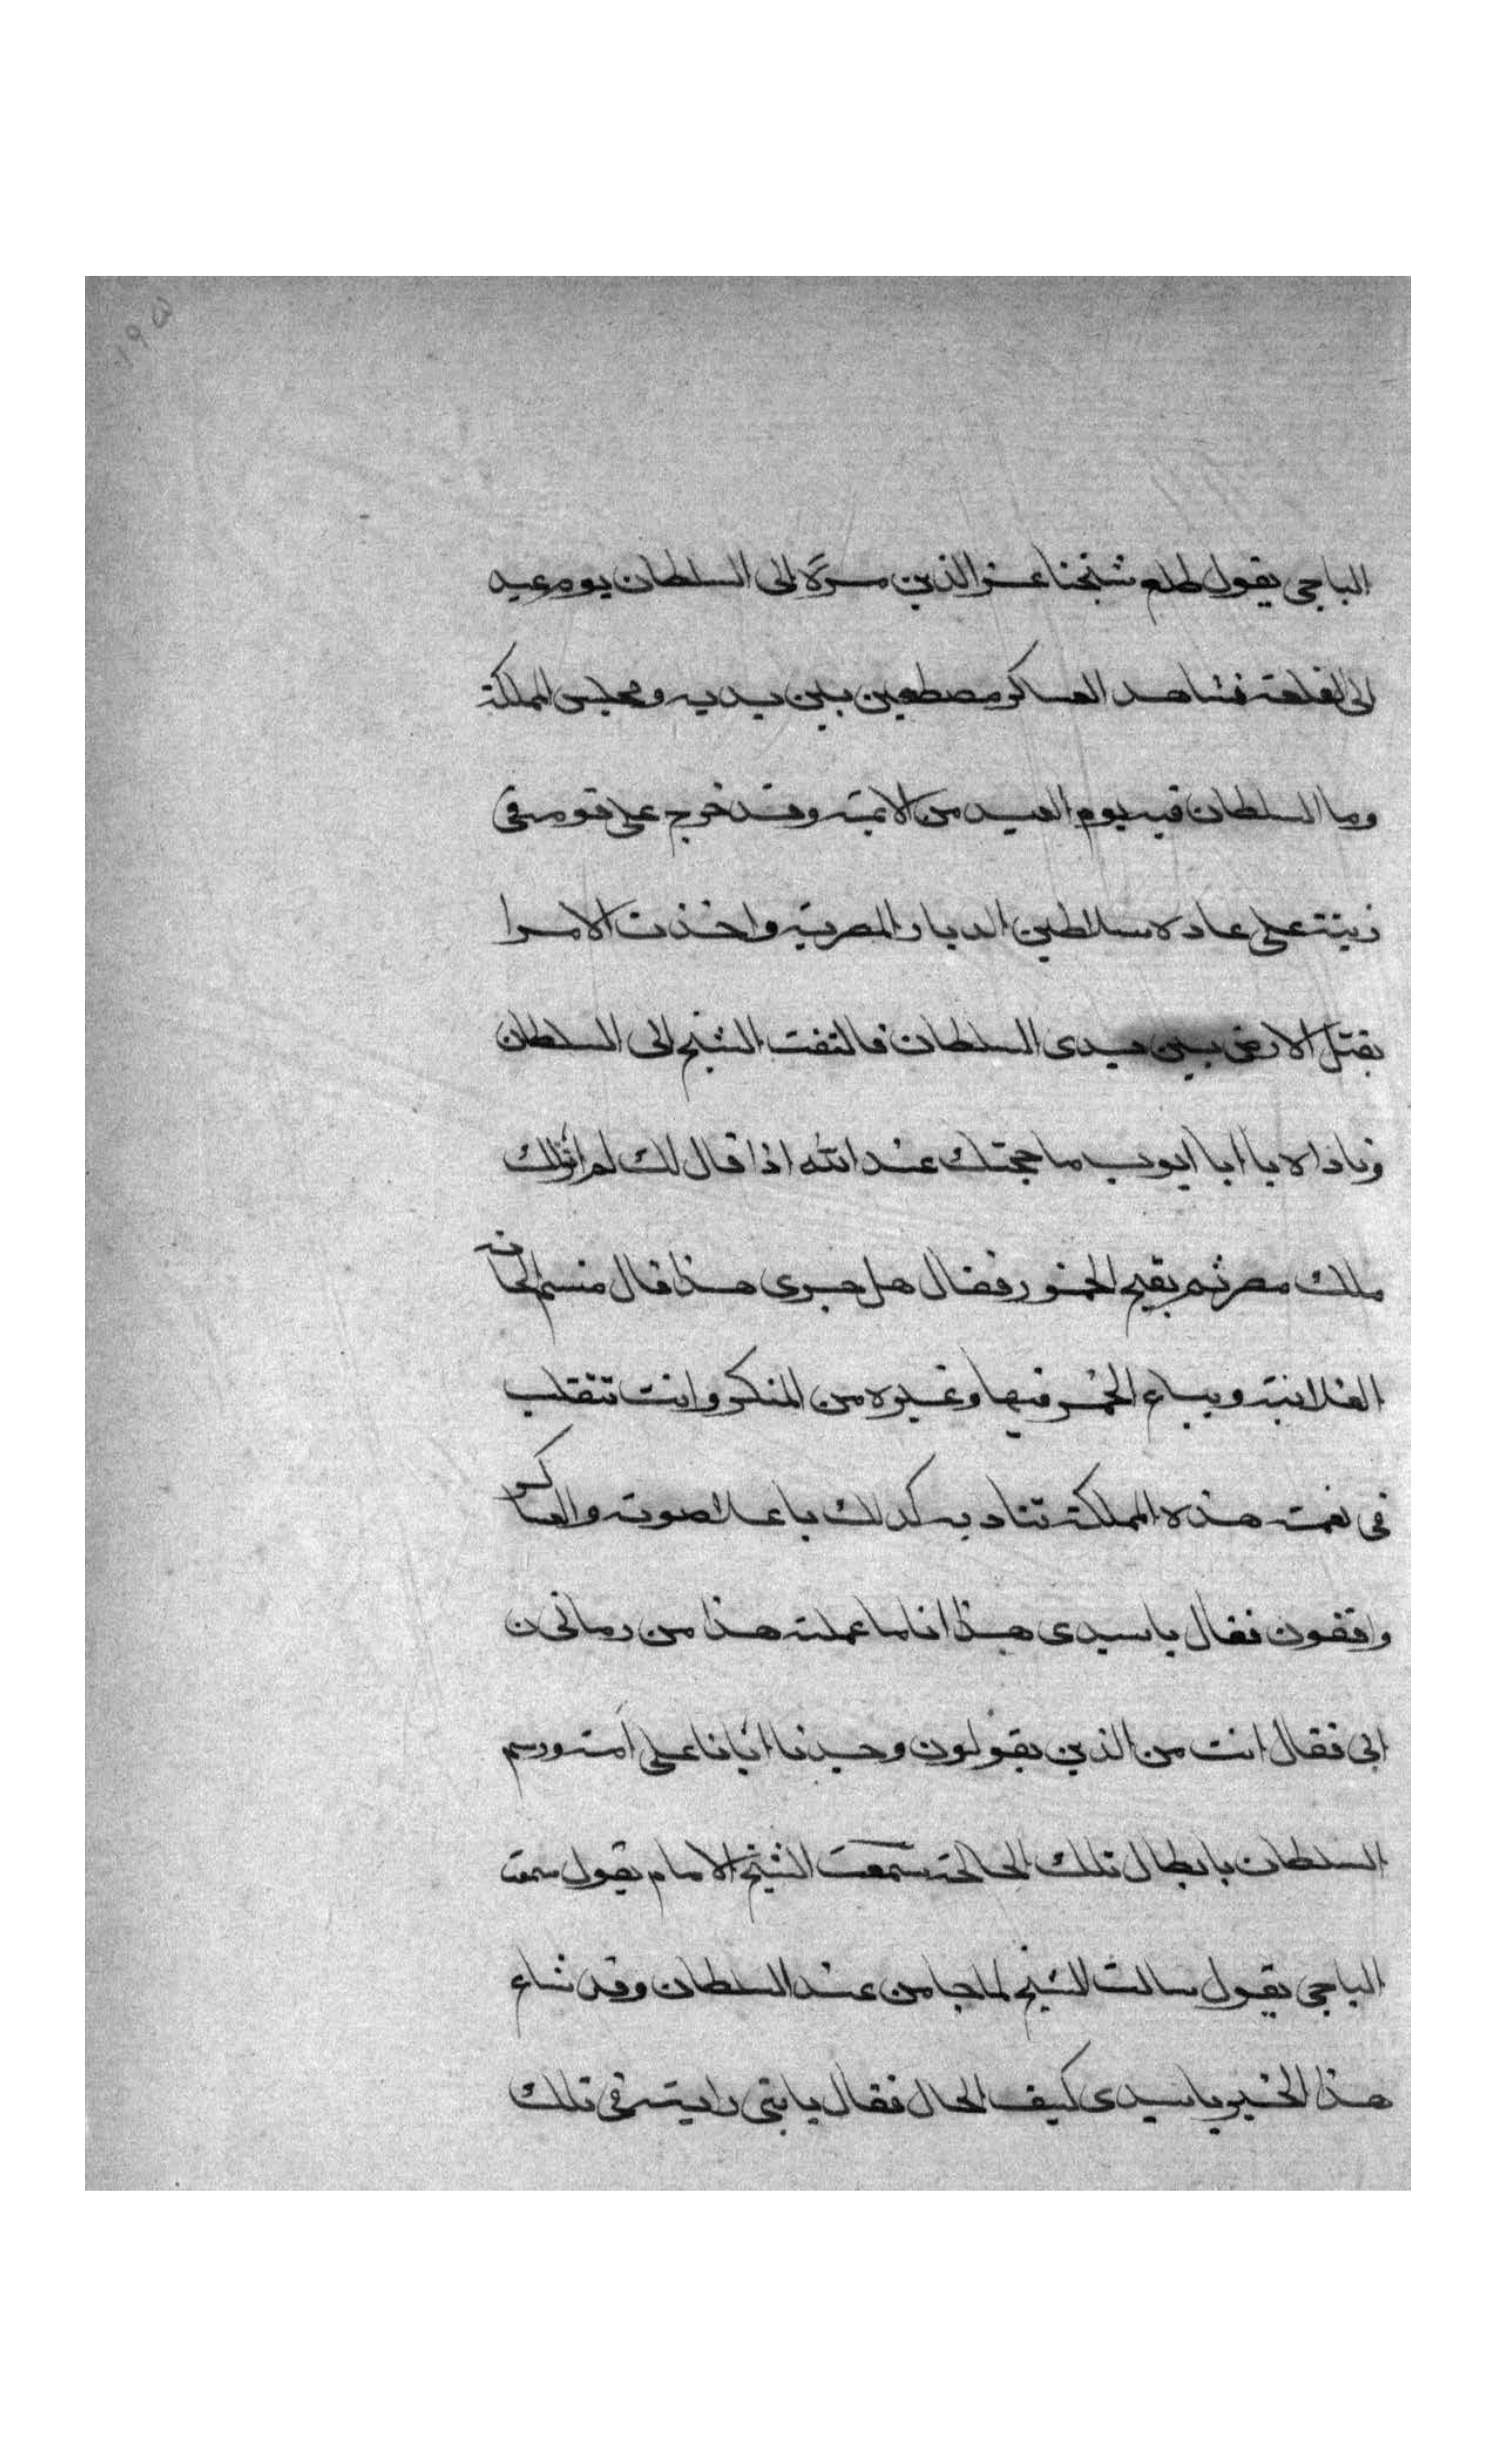 ١٩٥
الباجى يقول طلع شيخنا عز الدين مرّة الى السلطان يوم عيد
الى القلعة فشاهد العساكر مصطفين بين يديه ومجلس المملكة
وما السلطان فيه يوم العيد من الابهة وقد خرج على قومه فى
زينته على عادة سلاطين الديار المصرية واخذت الامرا
يقبل الارض بين يدى السلطان فالتفت الشيخ الى السلطان
وناداه يا ايا ايوب ما حجتك عند الله اذا قال لك لم اولك
ملك مصر ثم يقبح الخمور فقال هل جرى هذا قال منسم الحانة
الفلانية ويباع الخمر فيها وغيره من المنكر وانت تتقلب
فى نعمت هذه المملكة تناديه كذلك باعلا صوته والعساكر
واقفون فقال ياسيدى هذا انا ما عملته هذا من زمان
ابى فقال انت من الذين يقولون وجدنا ابانا على امة ورسم
السلطان بابطال تلك الحالة سمعت الشيخ الامام يقول سمعت
الباجى يقول سالت الشيخ لما جا من عند السلطان وقد شاع
هذا الخبر ياسيدى كيف الحال فقال يابنى رايته فى تلك